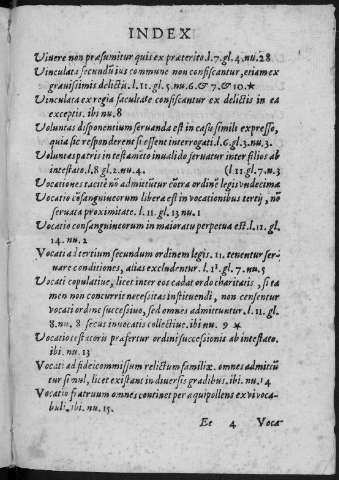 INDEX
Viuere non præsumitur quis ex præterito. l. 7. gl. 4. nu. 28
Vinculata secundũ ius commune non confiscantur, etiam ex
grauissimis delictis. l. 11. gl. 5. nu. 6. & 7. & 10. *
Vinculata ex regia facultate confiscantur ex delictis in ea
exceptis. ibi nu. 8
Voluntas disponentium seruanda est in casu simili expresso,
quia sic responderent si essent interrogati. l. 6. gl. 3. nu. 3.
Voluntas patris in testamẽto inualido seruatur inter filios ab
intestato. l. 8 gl. 2. nu. 4. (l. 11 gl. 7. n. 3
Vocationes tacitè nõ admittũtur cõtra ordinẽ legis vndecima
Vocatio cõsanguineorum libera est in vocationibus tertij, nõ
seruata proximitate. l. 11. gl. 13 nu. 1
Vocatio consanguineorum in maioratu perpetua est. l. 12. gl.
14. nu. 2
Vocati ad tertium secundum ordinem legis. 11. tenentur ser-
uare conditiones, alias excludentur. l. 11. gl. 7. nu. 5
Vocati copulatiue, licet inter eos cadat ordo charitatis, si ta
men non concurrit necessitas instituendi, non censentur
vocati ordine successiuo, sed omnes admittuntur. l. 11. gl.
8. nu. 8 secus in vocatis collectiue. ibi nu. 9 *
Vocationes testatoris præfertur ordini successionis ab intestato.
ibi. nu. 13
Vocati ad fideicommissum relictum familiæ. omnes admittũ
tur simul, licet existant in diuersis gradibus. ibi. nu. 14
Vocatio fratruum omnes continet per æquipollens ex vi voca-
buli. ibi. nu. 15.
Et 4 Voca-